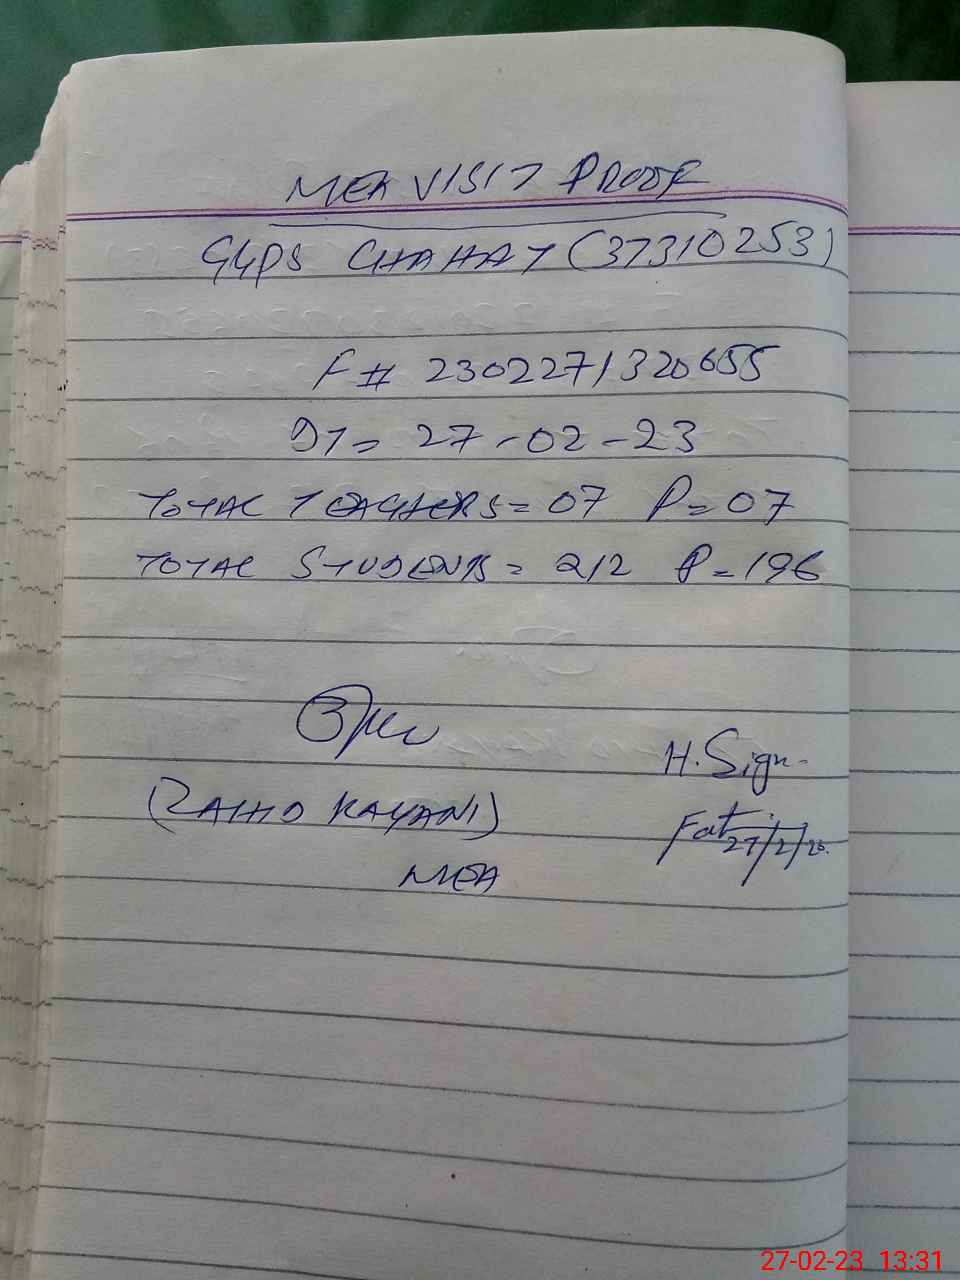 MEA VISIT PROOF
GGPS CHAHAT (37310253)
F# 2302271320655
DT= 27-02-23
TOTAL TEACHERS= 07 P=07
TOTAL STUDENTS= 212 P=196
(ZAHID KAYANI)
MEA
H. Sign.
27/2/23.
27-02-23 13:31